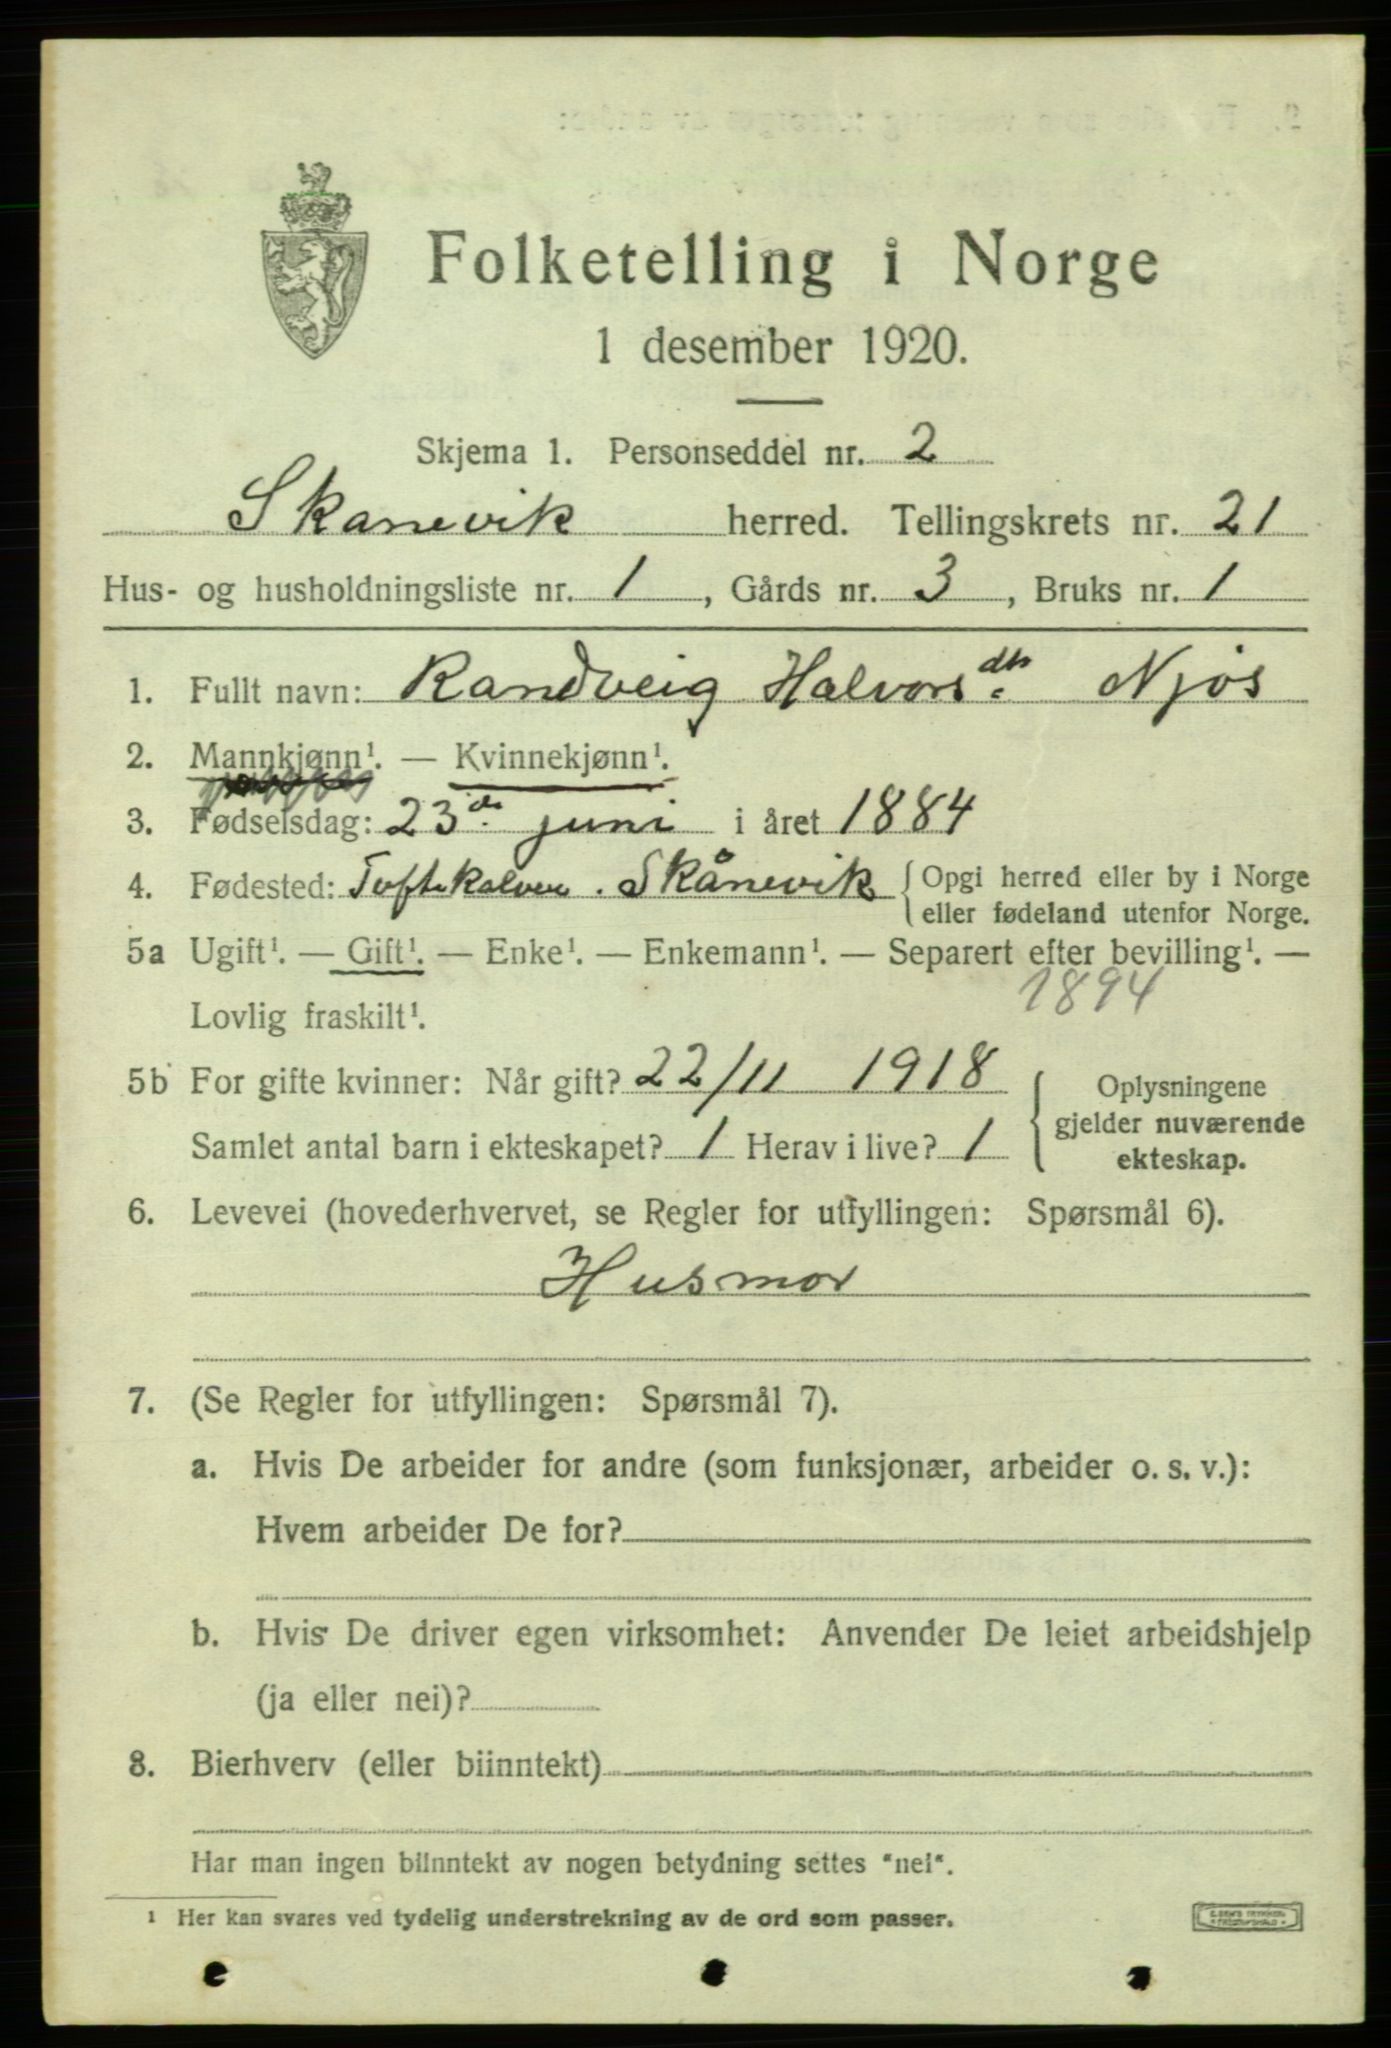 Folketelling i Norge
1 desember 1920.
Skjema 1. Personseddel nr. 2
Skanevik herred. Tellingskrets nr. 21
Hus- og husholdningsliste nr. 1, Gårds nr. 3, Bruks nr. 1
1. Fullt navn: Randveig Halvorsdtr Njøs
2. Mannkjønn¹. — Kvinnekjønn¹.
3. Fødselsdag: 23de juni i året 1884
4. Fødested: Toftekalven. Skånevik { Opgi herred eller by i Norge
eller fødeland utenfor Norge.
5a Ugift¹. — Gift¹. — Enke¹. — Enkemann¹. — Separert efter bevilling¹. —
1894
Lovlig fraskilt¹.
5b For gifte kvinner: Når gift? 22/11 1918
Samlet antal barn i ekteskapet? 1 Herav i live? 1
{ Oplysningene
gjelder nuværende
ekteskap.
6. Levevei (hovederhvervet, se Regler for utfyllingen: Spørsmål 6).
Husmor
7. (Se Regler for utfyllingen: Spørsmål 7).
a. Hvis De arbeider for andre (som funksjonær, arbeider o. s. v.):
Hvem arbeider De for?
b. Hvis De driver egen virksomhet: Anvender De leiet arbeidshjelp
(ja eller nei)?
8. Bierhverv (eller biinntekt)
Har man ingen biinntekt av nogen betydning settes "nei".
¹ Her kan svares ved tydelig understrekning av de ord som passer.